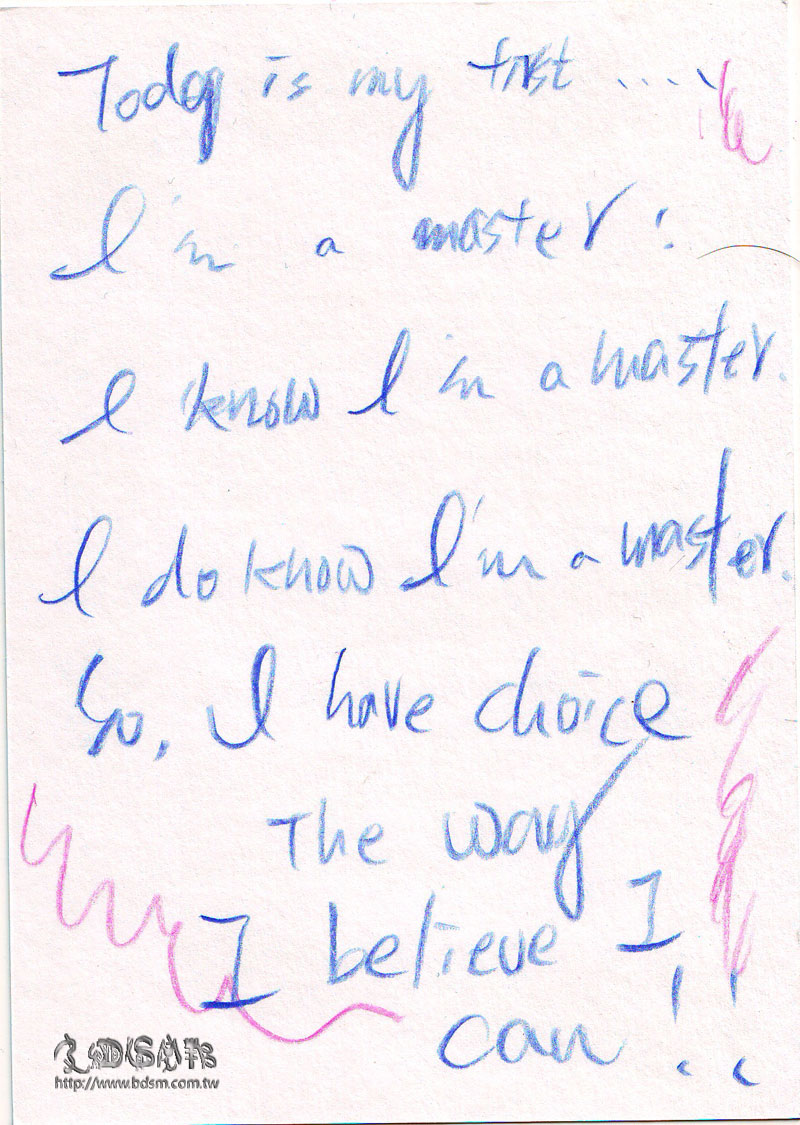 Today is my first .....
I'm a master!
I know I'm a master.
I do know I'm a master.
So, I have choice
The way
I believe I
can!!
http://www.bdsm.com.tw